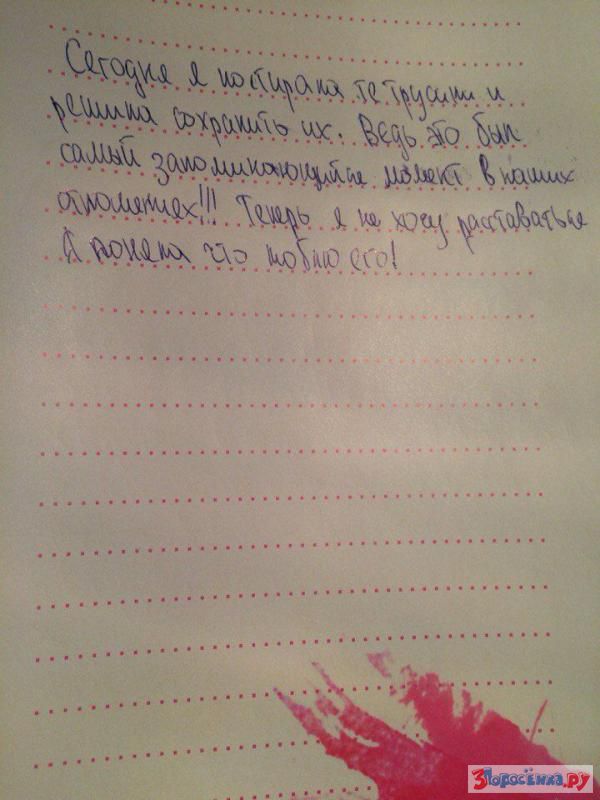 Сегодня я постирала те трусики и
решила сохранить их. Ведь это был
самый запоминающийся момент в наших
отношениях!!! Теперь я не хочу расставаться
Я поняла что люблю его!
3Поросёнка.ру